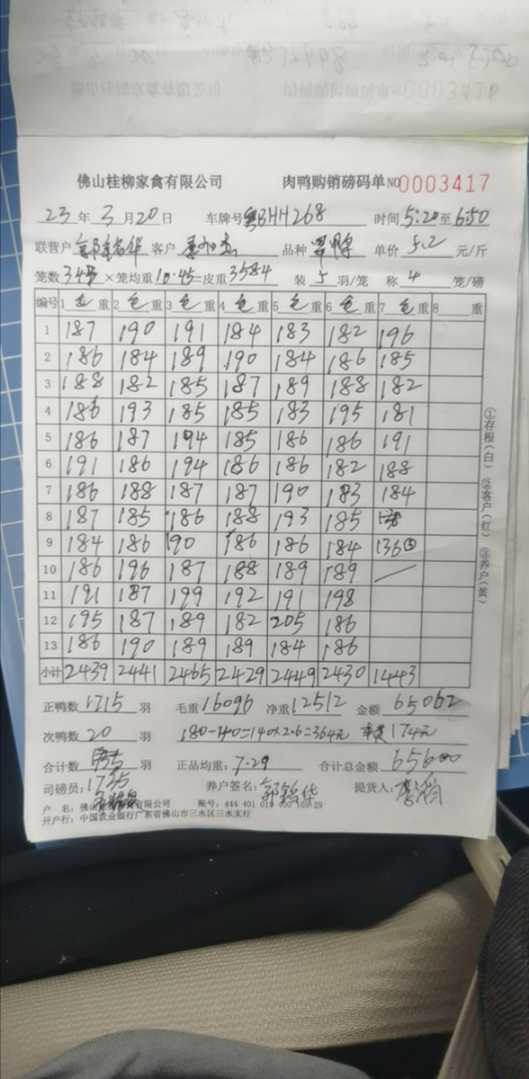 佛山桂柳家禽有限公司 肉鸭购销磅码单 NO0003417
23年3月20日 车牌号粤BHH268 时间5:20至6:50
联营户 客户 品种 单价5.2元/斤
笼数343×笼均重10.45=皮重3584 装5羽/笼 称4笼/磅
编号 1毛重 2毛重 3毛重 4毛重 5毛重 6毛重 7毛重 8重
1 187 190 191 184 183 182 196
2 186 184 189 190 184 186 185
3 188 182 185 187 189 188 182
4 186 193 185 185 183 195 181
5 186 187 194 185 186 186 191
6 191 186 194 186 186 182 188
7 186 188 187 187 190 183 184
8 187 185 186 188 193 185
9 184 186 190 186 186 184 136③
10 186 196 187 188 189 189
11 191 187 199 192 191 198
12 195 187 189 182 205 186
13 186 190 189 189 184 186
小计 2439 2441 2465 2429 2449 2430 1443
正鸭数1715羽 毛重16096 净重12512 金额65062
次鸭数20羽 180-40=140×2.6=364元 174元
合计数1735羽 正品均重:7.29 合计总金额65600
司磅员: 养户签名: 提货人:
户 名:佛山桂柳家禽有限公司 账号:444 401
开户行:中国农业银行广东省佛山市三水区三水支行
①存根(白) ②客户(红) ③养户(黄)